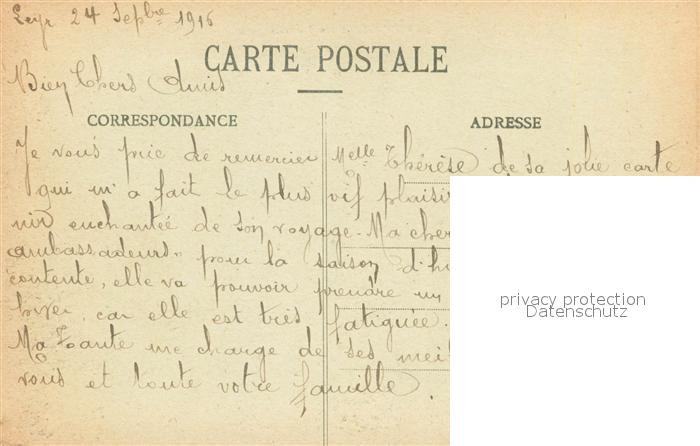 Leyr 24 Sepbre 1916
CARTE POSTALE
Bien Chers Amis
CORRESPONDANCE
ADRESSE
Je vous prie de remercier Melle Thérèse de sa jolie carte
qui m'a fait le plus vif plaisir
nir enchantée de son voyage. Ma cher
ambassadeurs" pour la saison d'hi
contente, elle va pouvoir prendre un
hiver, car elle est très fatiguée.
Ma Tante me charge de ses meil
vous et toute votre famille.
privacy protection
Datenschutz